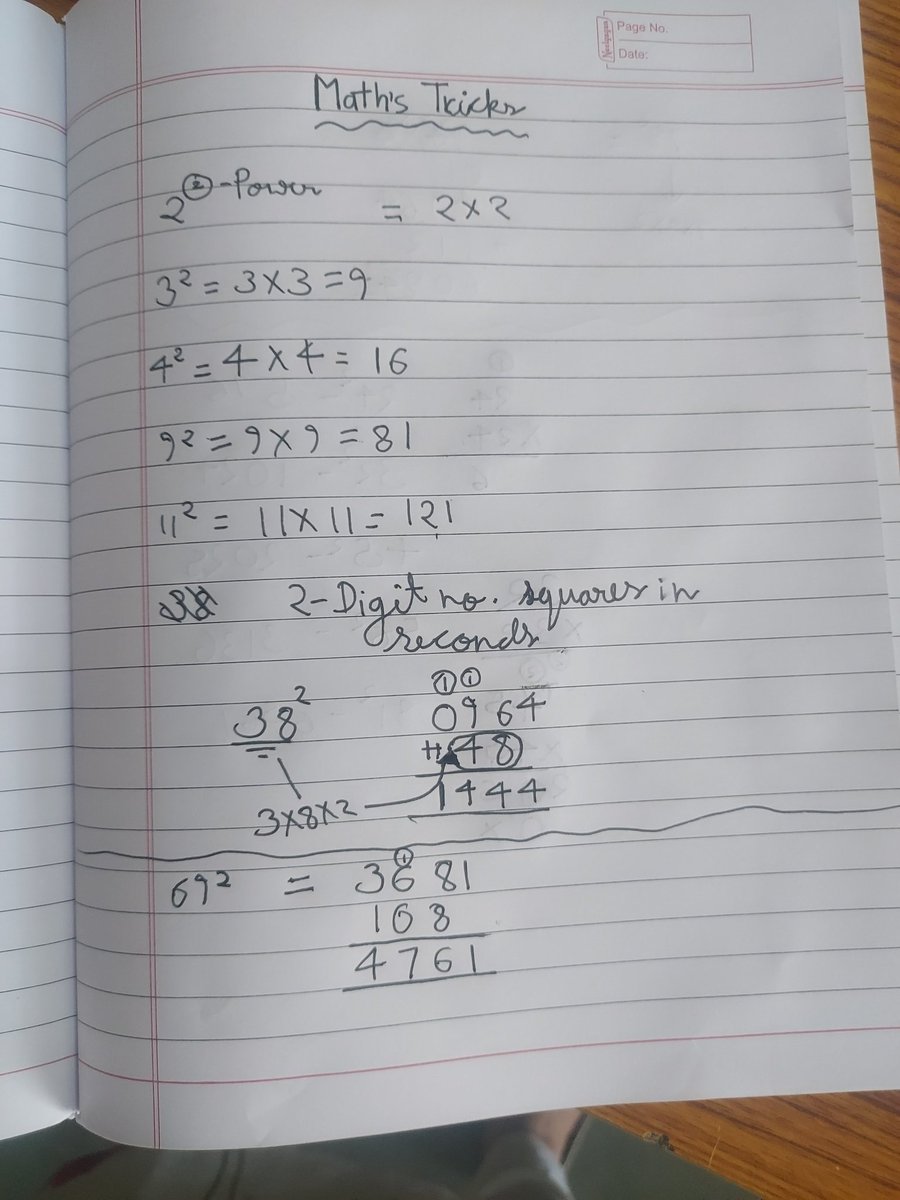 Neelgagan
Page No.
Date:
Math's Tricks
2② -Power = 2×2
3² = 3×3 = 9
4² = 4 × 4 = 16
9² = 9×9 = 81
11² = 11×11 = 121
2-Digit no. squares in
seconds
①①
38² 0964
+1 48
3×8×2 1444
①
69² = 3681
108
4761